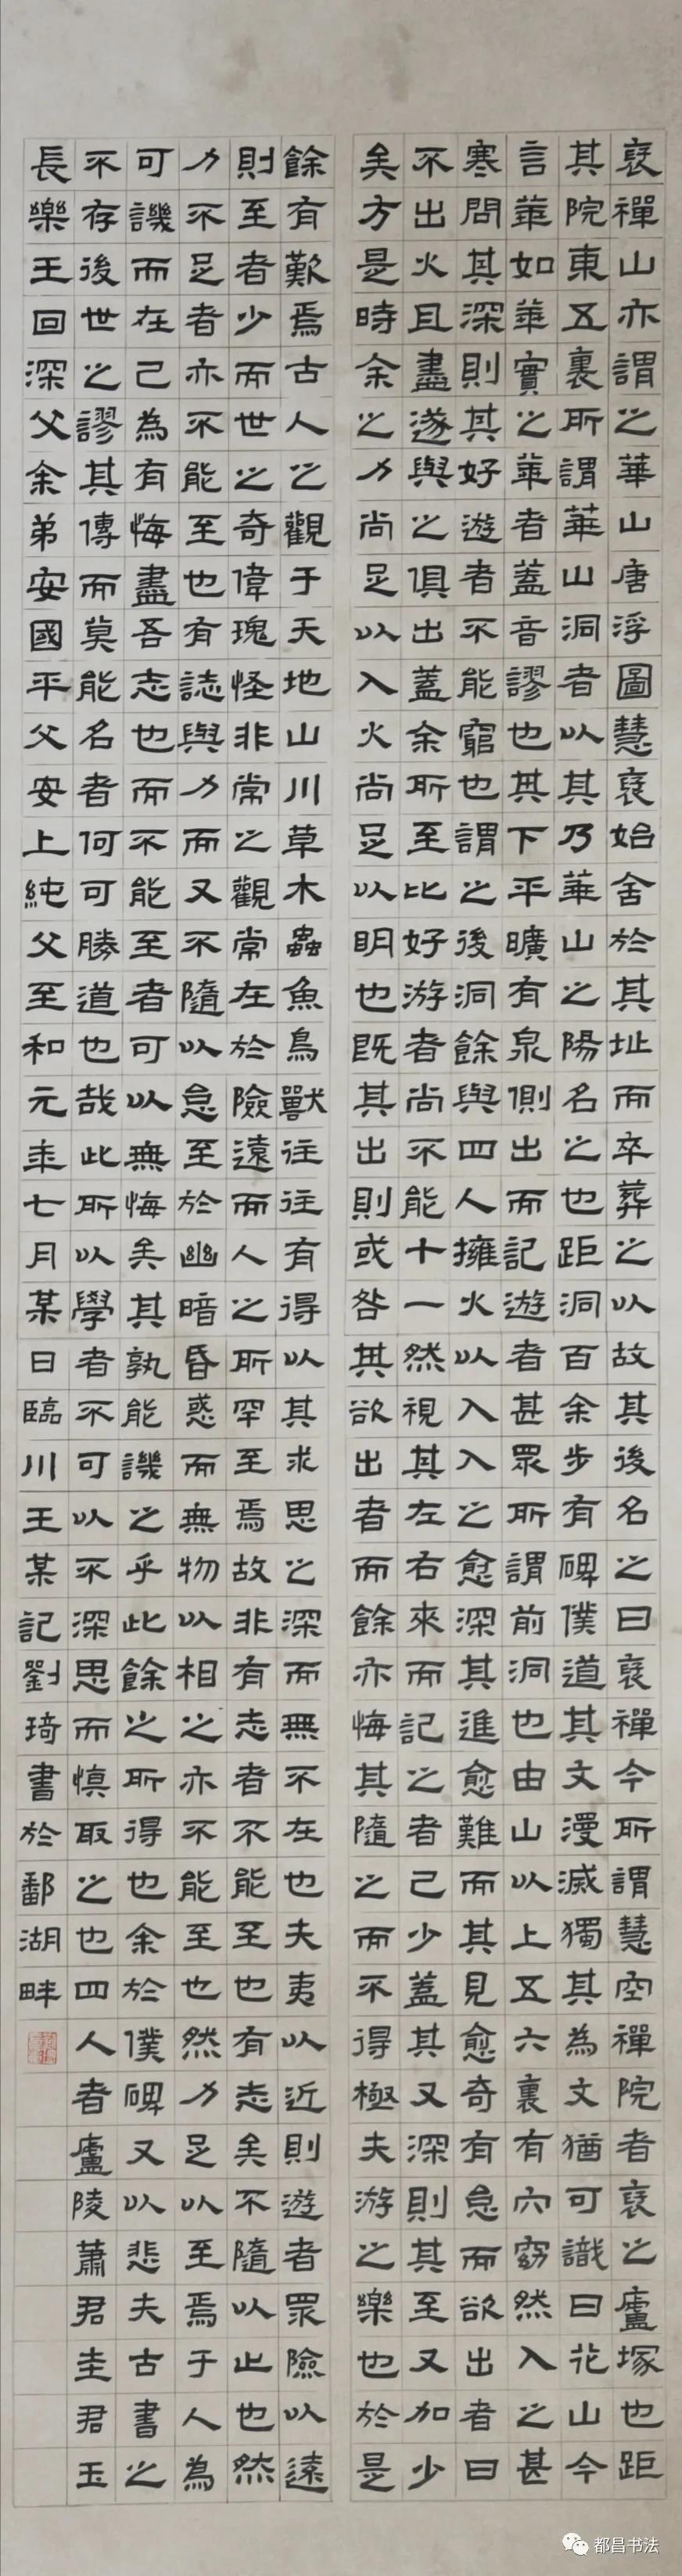 裒禪山亦謂之華山唐浮圖慧裒始舍於其址而卒葬之以故其後名之曰裒禪今所謂慧空禪院者裒之盧塚也距
其院東五裏所謂華山洞者以其乃華山之陽名之也距洞百余步有碑僕道其文漫滅獨其為文猶可識曰花山今
言華如華實之華者蓋音謬也其下平曠有泉側出而記遊者甚眾所謂前洞也由山以上五六裏有穴窈然入之甚
寒問其深則其好遊者不能窮也謂之後洞餘與四人擁火以入入之愈深其進愈難而其見愈奇有怠而欲出者曰
不出火且盡遂與之俱出蓋余所至比好游者尚不能十一然視其左右來而記之者己少蓋其又深則其至又加少
矣方是時余之力尚足以入火尚足以明也既其出則或咎其欲出者而餘亦悔其隨之而不得極夫游之樂也於是
餘有歎焉古人之觀于天地山川草木蟲魚鳥獸往往有得以其求思之深而無不在也夫夷以近則遊者眾險以遠
則至者少而世之奇偉瑰怪非常之觀常在於險遠而人之所罕至焉故非有志者不能至也有志矣不隨以止也然
力不足者亦不能至也有誌與力而又不隨以怠至於幽暗昏惑而無物以相之亦不能至也然力足以至焉于人為
可譏而在己為有悔盡吾志也而不能至者可以無悔矣其孰能譏之乎此餘之所得也余於僕碑又以悲夫古書之
不存後世之謬其傳而莫能名者何可勝道也哉此所以學者不可以不深思而慎取之也四人者盧陵蕭君圭君玉
長樂王回深父余弟安國平父安上純父至和元年七月某日臨川王某記劉琦書於鄱湖畔
都昌书法